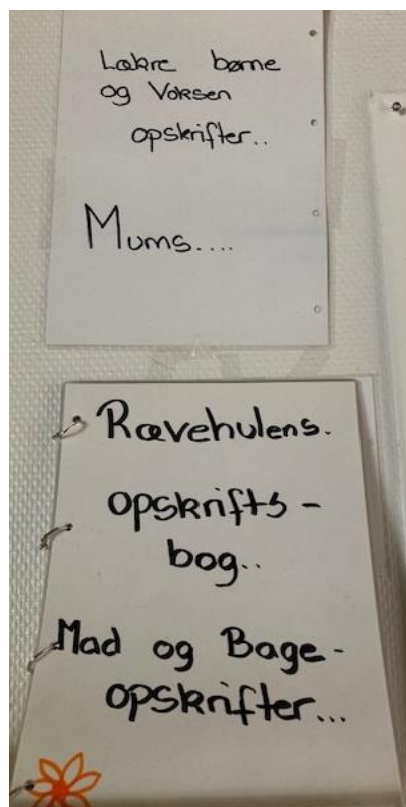 Lækre børne
og Voksen
opskrifter..
Mums....
Rævehulens.
opskrifts-
bog..
Mad og Bage-
opskrifter...